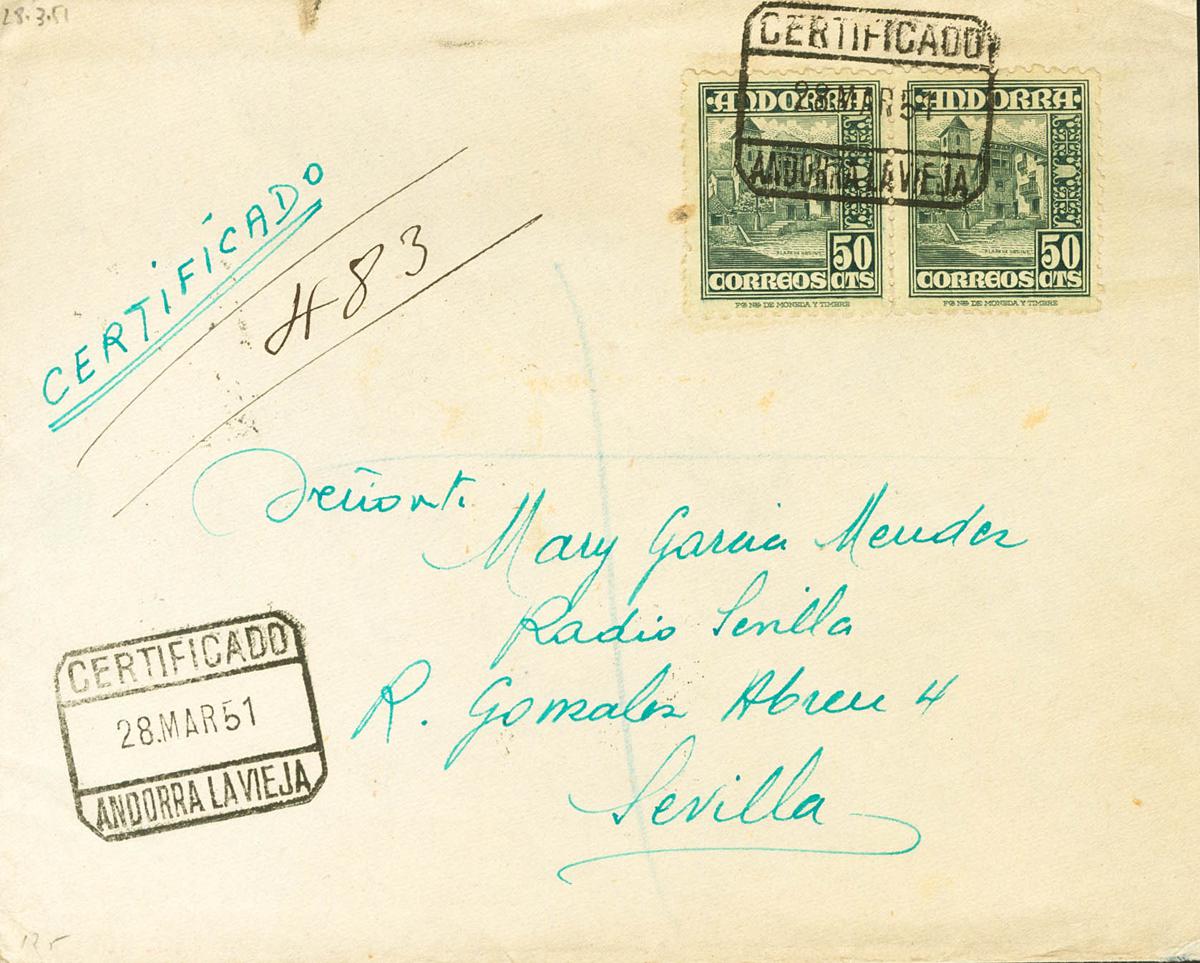 28.3.51
CERTIFICADO
28.MAR 51
ANDORRA LA VIEJA
ANDORRA ANDORRA
50 CTS 50 CTS
CORREOS CORREOS
Fª Nª DE MONEDA Y TIMBRE Fª Nª DE MONEDA Y TIMBRE
CERTIFICADO
483
Mary Garcia Mendez
Radio Sevilla
R. Gonzalez Abreu 4
Sevilla
CERTIFICADO
28.MAR 51
ANDORRA LA VIEJA